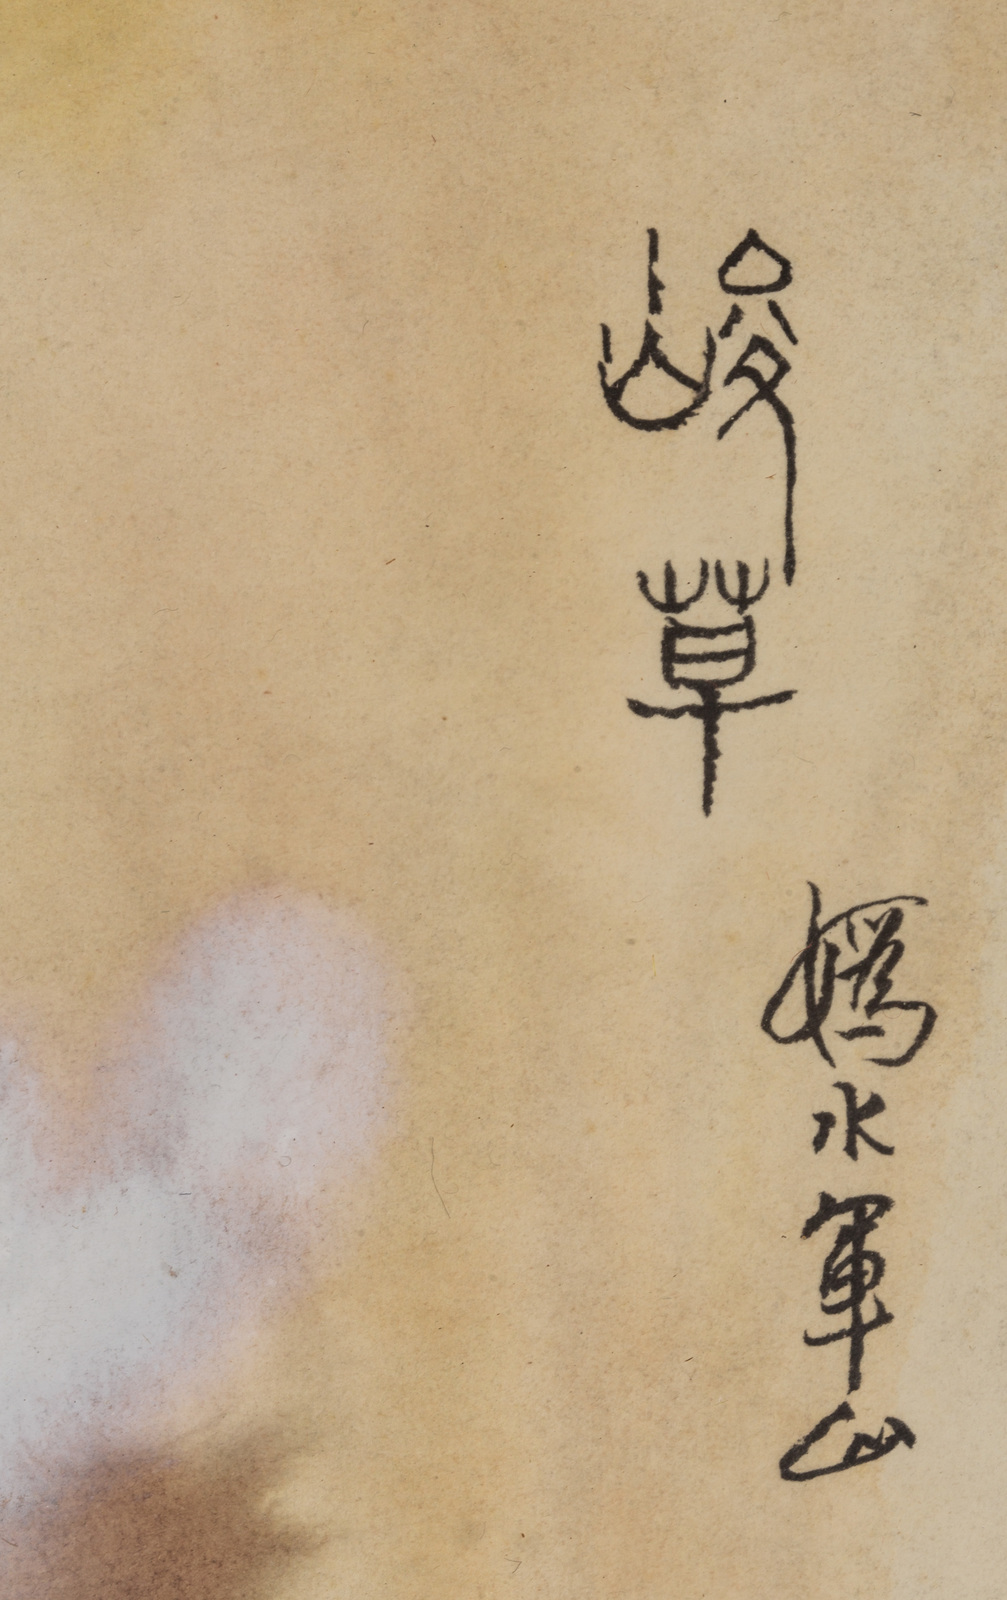 峻草
嬀水軍山